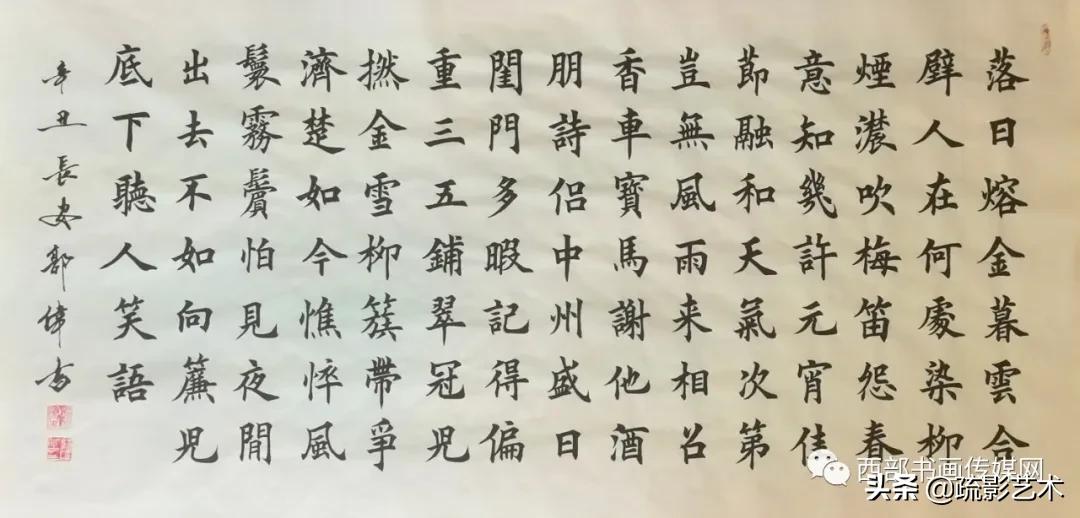 落日熔金暮雲合
璧人在何處染柳
煙濃吹梅笛怨春
意知幾許元宵佳
節融和天氣次第
豈無風雨来相召
香車寶馬謝他酒
朋詩侶中州盛日
閨門多暇記得偏
重三五鋪翠冠兒
撚金雪柳簇帶爭
濟楚如今憔悴風
鬟霧鬢怕見夜間
出去不如向簾兒
底下聽人笑語
辛丑長安郭偉書
西部书画传媒网
头条 @疏影艺术